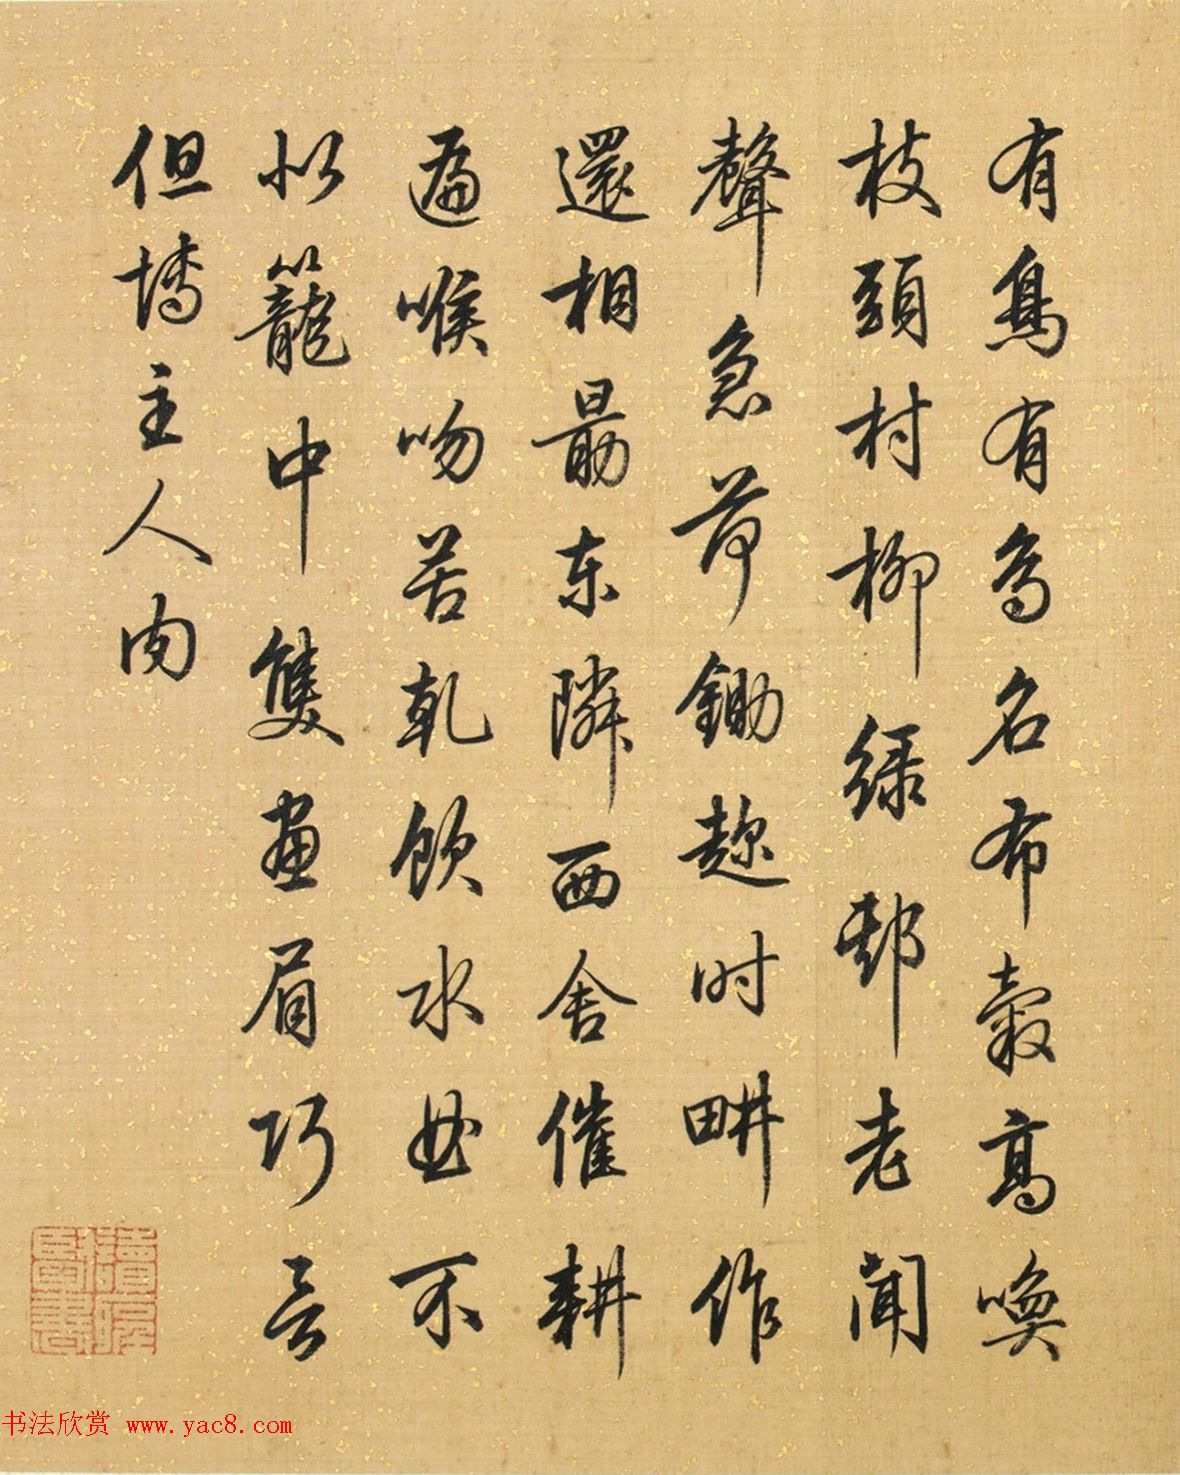 有鳥有鳥名布穀高喚
枝頭村柳緑野老聞
聲急荷鋤趂时畊作
還相勗东隣西舍催耕
遍喉吻苦乾飲水曲不
似籠中雙畫眉巧言
但博主人肉
书法欣赏 www.yac8.com